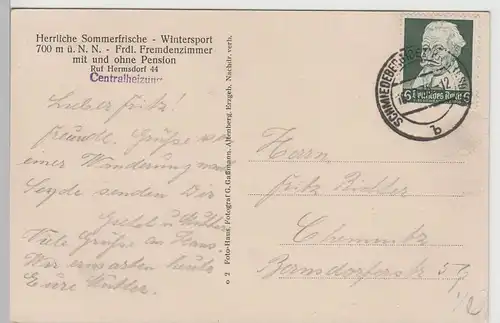 Herrliche Sommerfrische - Wintersport
700 m ü. N. N. - Frdl. Fremdenzimmer
mit und ohne Pension
Ruf Hermsdorf 44
Centralheizung
Lieber Fritz!
freundl. Grüße von
einer Wanderung nach
Seyde senden Dir
Gretel u. Mutter
Viele Grüße an Hans.
Wir erwarten heute
Eure Mutter.
o 2 Foto-Haus, Fotograf G. Gaßmann, Altenberg, Erzgeb. Nachdr. verb.
SCHMIEDEBERG
b
6 Deutsches Reich 6
Herrn
Fritz Richter
Chemnitz
Bernsdorferstr. 57